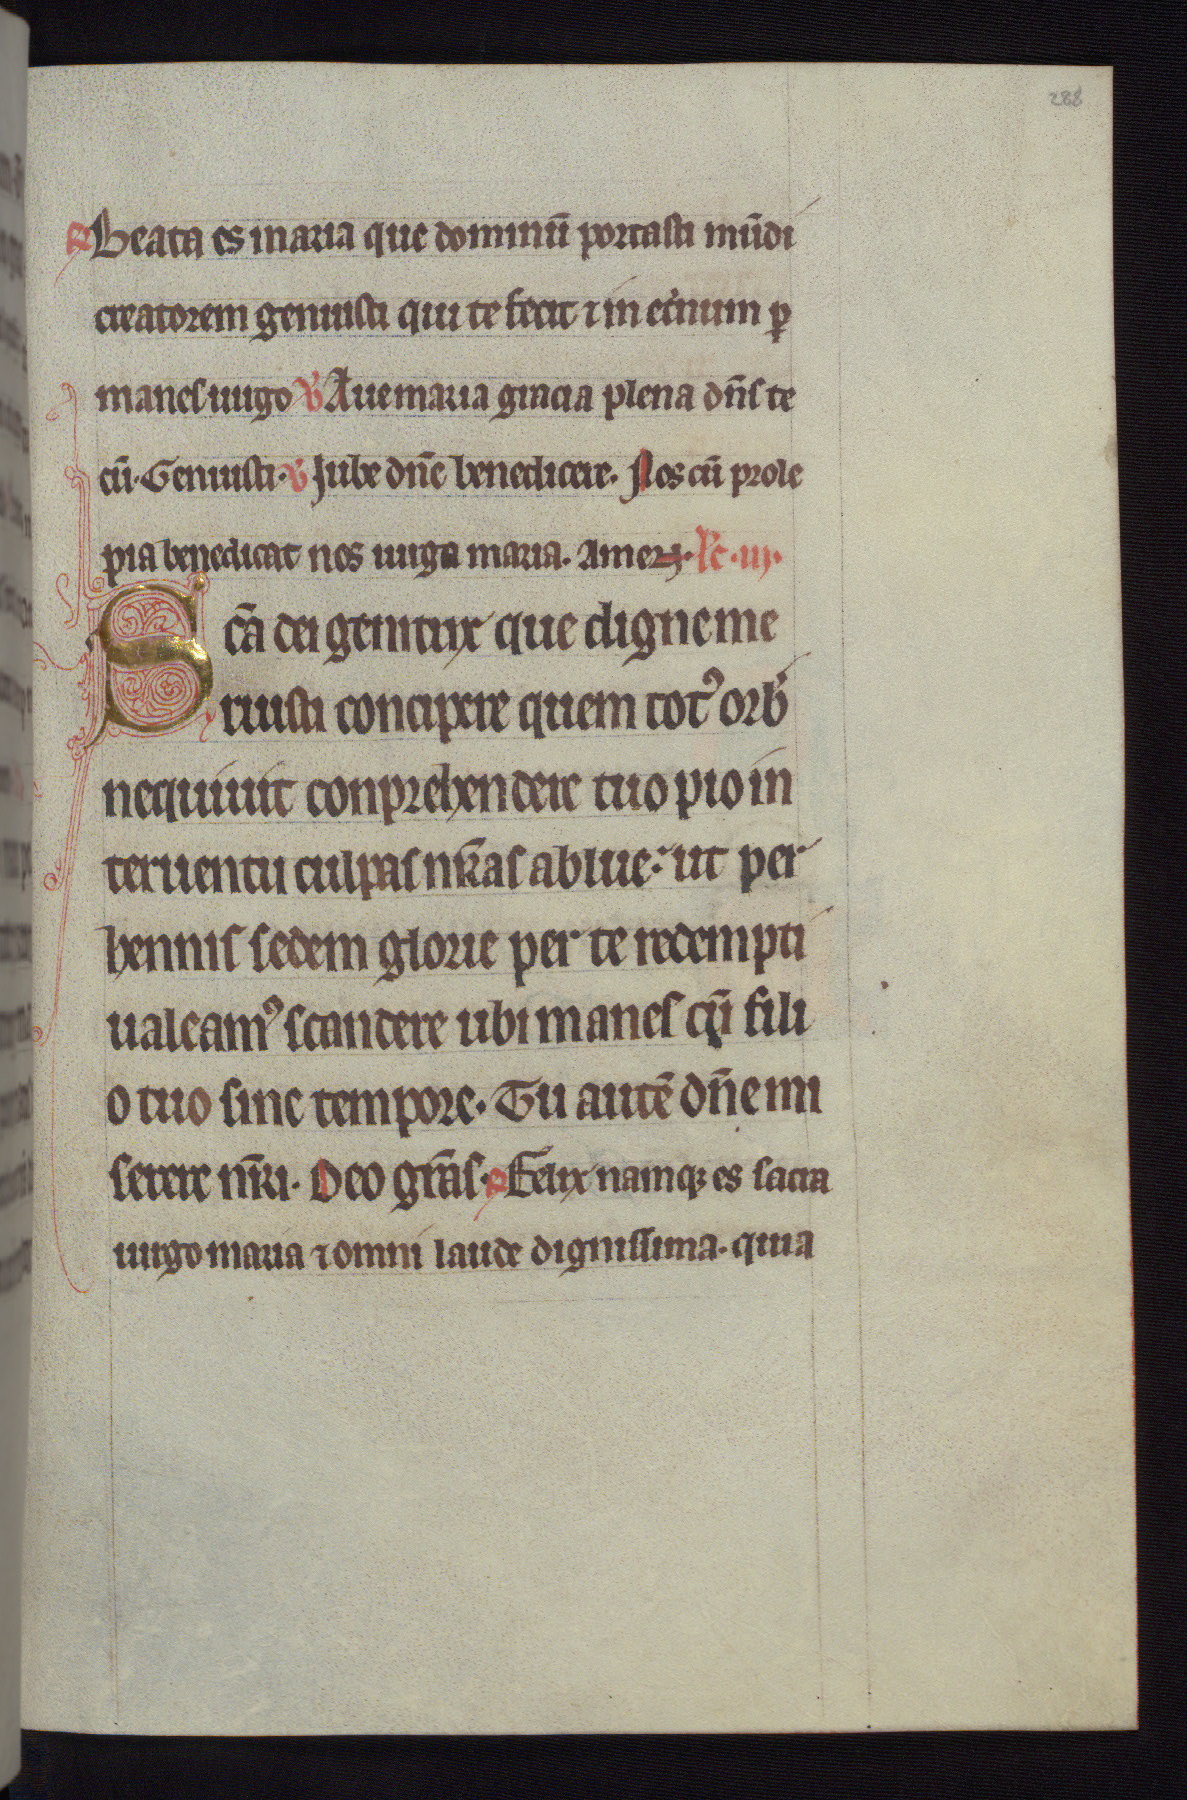 288
℟ Beata es maria que dominū portasti mūdi
creatorem genuisti qui te fecit ⁊ in et̾num ꝑ
manes uirgo ℣ Aue maria gracia plena dn̄s te
cū. Genuisti. ℣ Jube dn̄e benedicere. Nos cū prole
pia benedicat nos uirgo maria. Amen. Lc̄. iij.
Sc̄a dei genitrix que digne me
ruisti concipere quem totꝰ orb̾
nequiuit conprehendere tuo pio in
teruentu culpas nr̄as ablue. ut per
hennis sedem glorie per te redempti
ualeamꝰ scandere ubi manes cū fili
o tuo sine tempore. Tu autē dn̄e mi
serere nr̄i. Deo gr̄as. ℟ Felix namqꝫ es sacra
uirgo maria ⁊ omni laude dignissima. quia